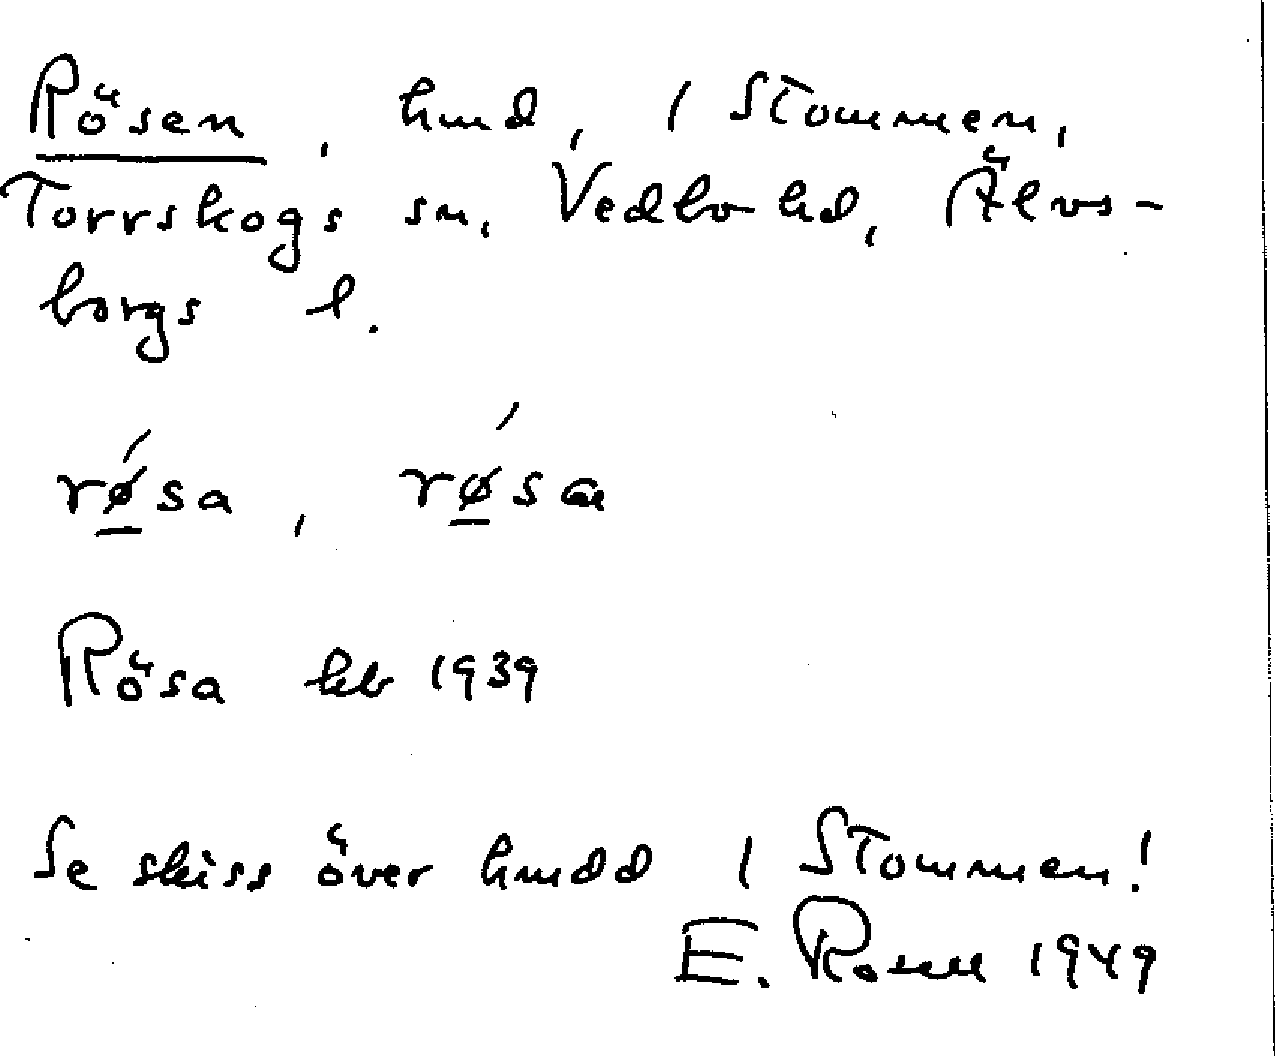 Rösen, hmd, 1 Stommen,
Torrskogs sn, Vedbo hd, Älvs-
borgs l.
rǿsa, rǿsa
Rösa kb 1939
Se skiss över hmdd 1 Stommen!
E. Rosell 1949